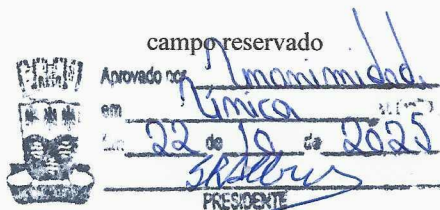 campo reservado
Aprovado por Unanimidad.
em Única
22 de 10 de 2025
PRESIDENTE